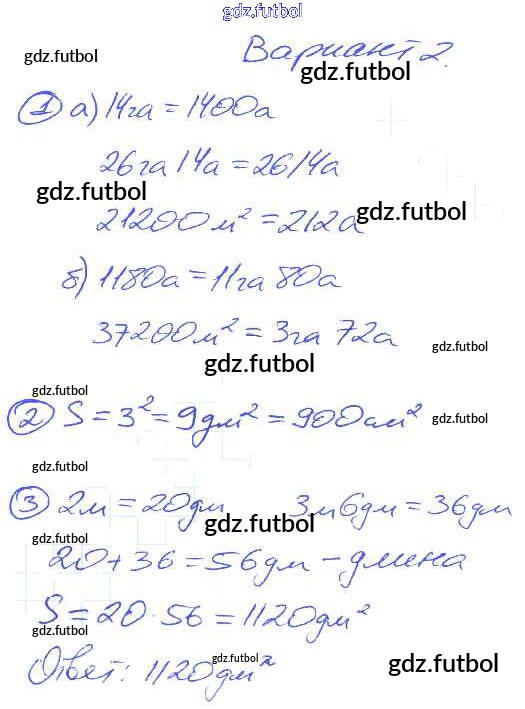 gdz.futbol
Вариант 2.
gdz.futbol
gdz.futbol
① а) 14га = 1400а
26га 14а = 2614а
gdz.futbol
21200м² = 212а
gdz.futbol
б) 1180а = 11га 80а
37200м² = 3га 72а
gdz.futbol
gdz.futbol
gdz.futbol
② S = 3² = 9дм² = 900см²
gdz.futbol
gdz.futbol
③ 2м = 20дм 3м 6дм = 36дм
gdz.futbol
gdz.futbol
20 + 36 = 56дм - длина
S = 20 · 56 = 1120дм²
gdz.futbol
Ответ: 1120дм²
gdz.futbol
gdz.futbol